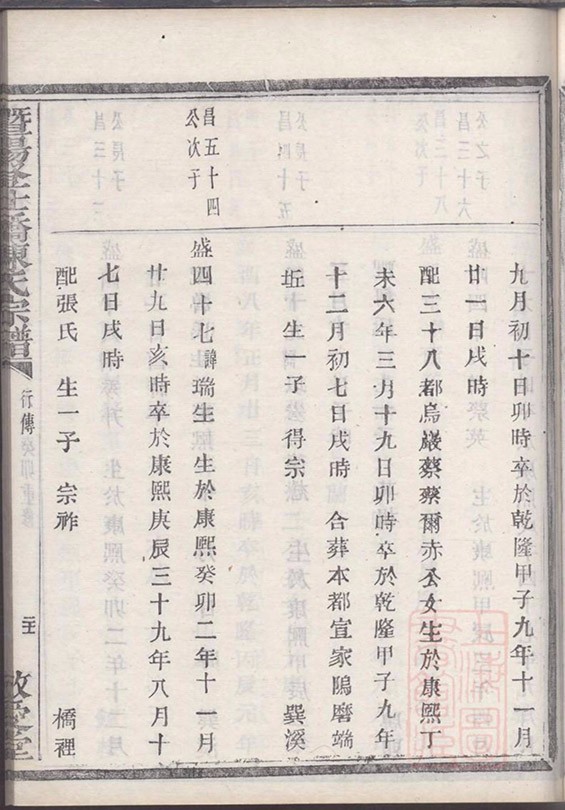 九月初十日卯時卒於乾隆甲子九年十一月
廿一日戌時
配三十八都烏巖蔡爾赤公女生於康熙丁
未六年三月十九日卯時卒於乾隆甲子九年
十二月初七日戌時 合葬本都宣家隝磨端
坵 生一子 得宗
昌五十四
公次子
盛四十七諱瑞生 生於康熙癸卯二年十一月
廿九日亥時卒於康熙庚辰三十九年八月十
七日戌時
配張氏 生一子 宗祚
橋裡
陳氏宗譜
行傳